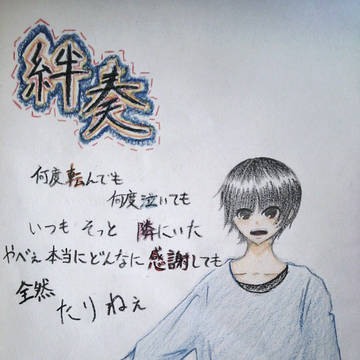 絆奏
何度転んでも
何度泣いても
いつも そっと 隣にいた
やべぇ 本当にどんなに 感謝しても
全然
たりねぇ